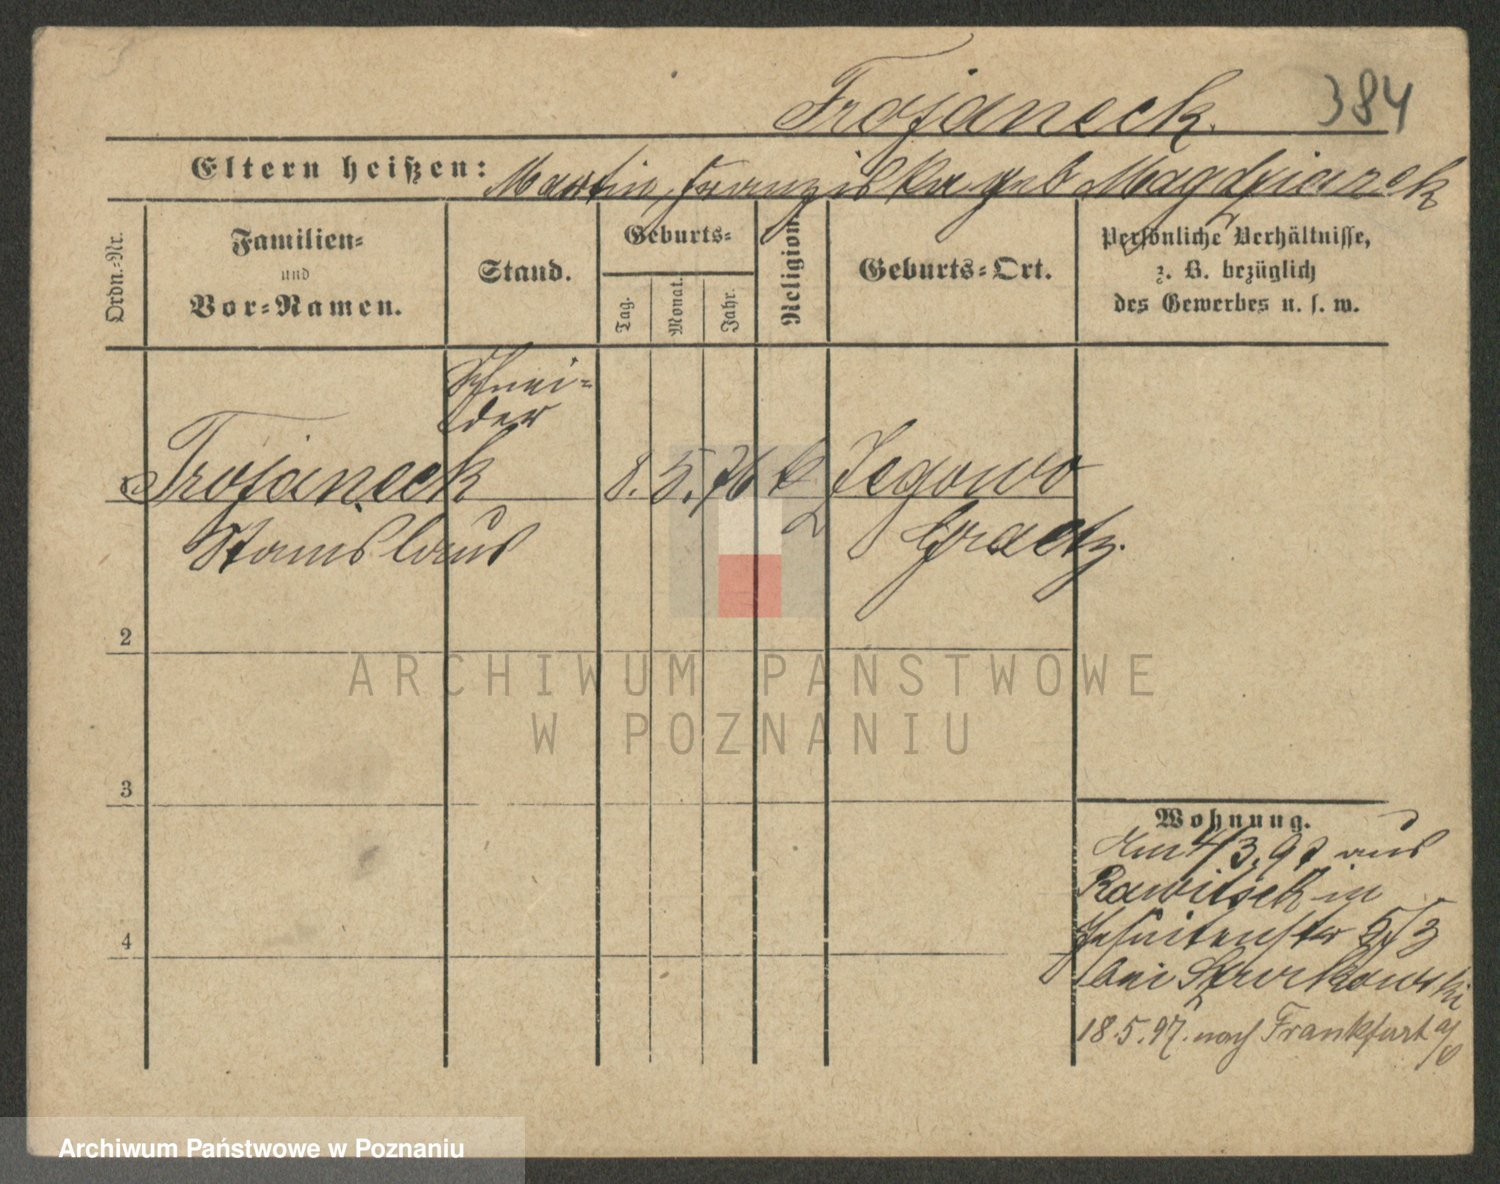 Trojaneck. 384
Eltern heißen: Martin, Franziska geb Magdziarek
Ordn.-Nr.
Familien-
und
Vor-Namen.
Stand.
Geburts-
Tag.
Monat.
Jahr.
Religion.
Geburts-Ort.
Persönliche Verhältnisse,
z. B. bezüglich
des Gewerbes u. s. w.
Schnei-
der
1 Trojaneck 8. 5. 76 k
Stanislaus
Graetz.
2
3
4
Wohnung.
Am 4/3. 97 aus
Rawitsch in
Jesuitenstr 5/3
bei
18.5.97. nach Frankfurt a/O
ARCHIWUM PAŃSTWOWE
W POZNANIU
Archiwum Państwowe w Poznaniu